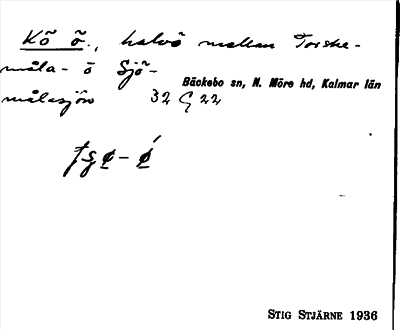 Kõ õ., halvö mellan Torske-
måla- o Sjö-
Bäckebo sn, N. Möre hd, Kalmar län
målasjön 32 G 22
STIG STJÄRNE 1936